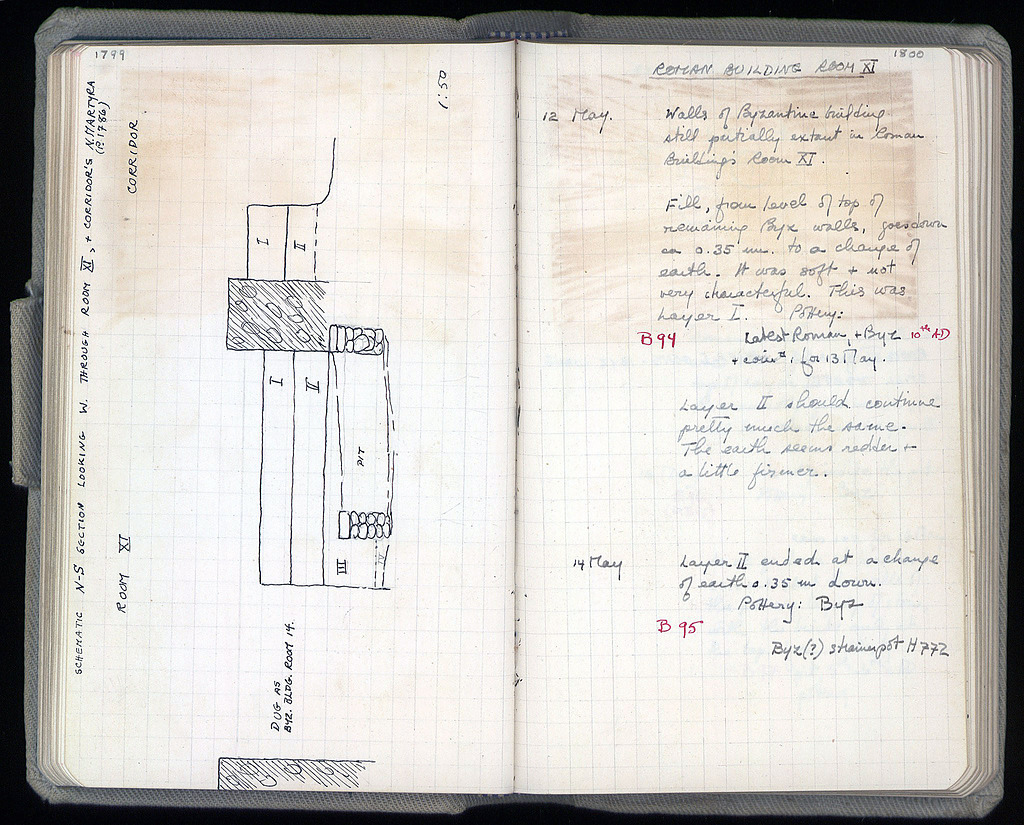 1799
SCHEMATIC N-S SECTION LOOKING W. THROUGH ROOM XI, + CORRIDOR'S N. MARTYRA
(P. 1786)
CORRIDOR
ROOM XI
1:50
I
II
I
II
PIT
III
IV
DUG AS
BYZ. BLDG. ROOM 14.
1800
ROMAN BUILDING ROOM XI
12 May.
Walls of Byzantine building
still partially extant in Roman
Building's Room XI.
Fill, from level of top of
remaining Byz walls, goes down
ca 0.35 m. to a change of
earth. It was soft + not
very characterful. This was
Layer I. Pottery:
B 94
Latest Roman, + Byz 10th AD
+ coin #1 for 13 May.
Layer II should continue
pretty much the same.
The earth seems redder +
a little firmer.
14 May
Layer II ended at a change
of earth 0.35 m down.
Pottery: Byz
B 95
Byz(?) strainerpot H 772